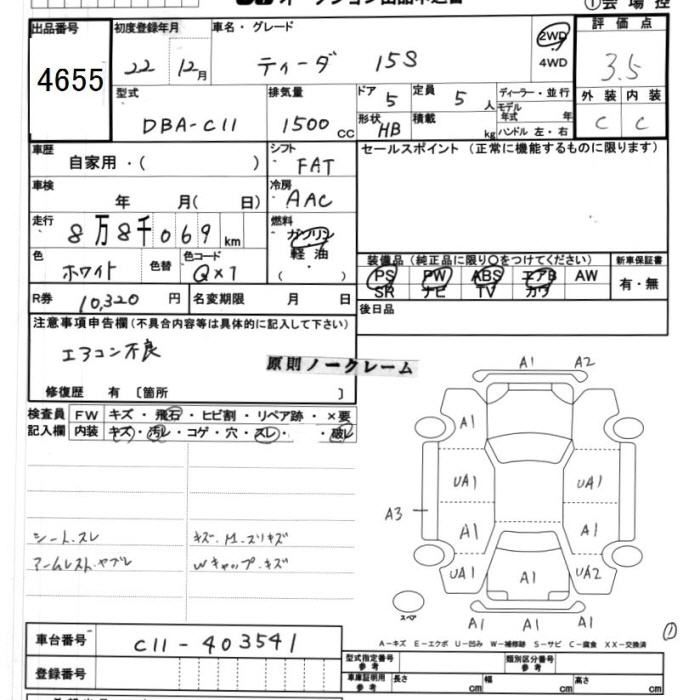 オークション出品申込書
① 会場控
出品番号 初度登録年月 車名・グレード 評価点
4655 22 12月 ティーダ 15S 2WD 4WD 3.5
型式 排気量 ドア 5 定員 5人 ディーラー・並行 外装 内装
DBA-C11 1500cc 形状 HB 積載 kg モデル年式 年 ハンドル 左・右 C C
車歴 シフト セールスポイント(正常に機能するものに限ります)
自家用・( ) FAT
車検 年 月( 日) 冷房 AAC
走行 8万8千069km 燃料 ガソリン 軽油 ・( )
色 ホワイト 色替 色コード QX1
装備品(純正品に限り○をつけてください) 新車保証書
PS PW ABS エアB AW 有・無
SR ナビ TV カワ
R券 10,320円 名変期限 月 日 後日品
注意事項申告欄(不具合内容等は具体的に記入して下さい)
エアコン不良
原則ノークレーム
修復歴 有 〔箇所 〕
検査員 FW キズ・飛石・ヒビ割・リペア跡・×要
記入欄 内装 キズ・汚レ・コゲ・穴・スレ・ ・破レ
シート.スレ キズ.M.スリキズ
アームレスト.ヤブレ Wキャップ.キズ
A1 A2
A1
UA1 UA1
A3 A1 A1
UA1 A1 UA2
A1 A1 A1
スペア
①
A-キズ E-エクボ U-凹み W-補修跡 S-サビ C-腐食 XX-交換済
車台番号 C11-403541
型式指定番号 参考 類別区分番号 参考
登録番号 車庫証明用 参考 長さ cm 幅 cm 高さ cm